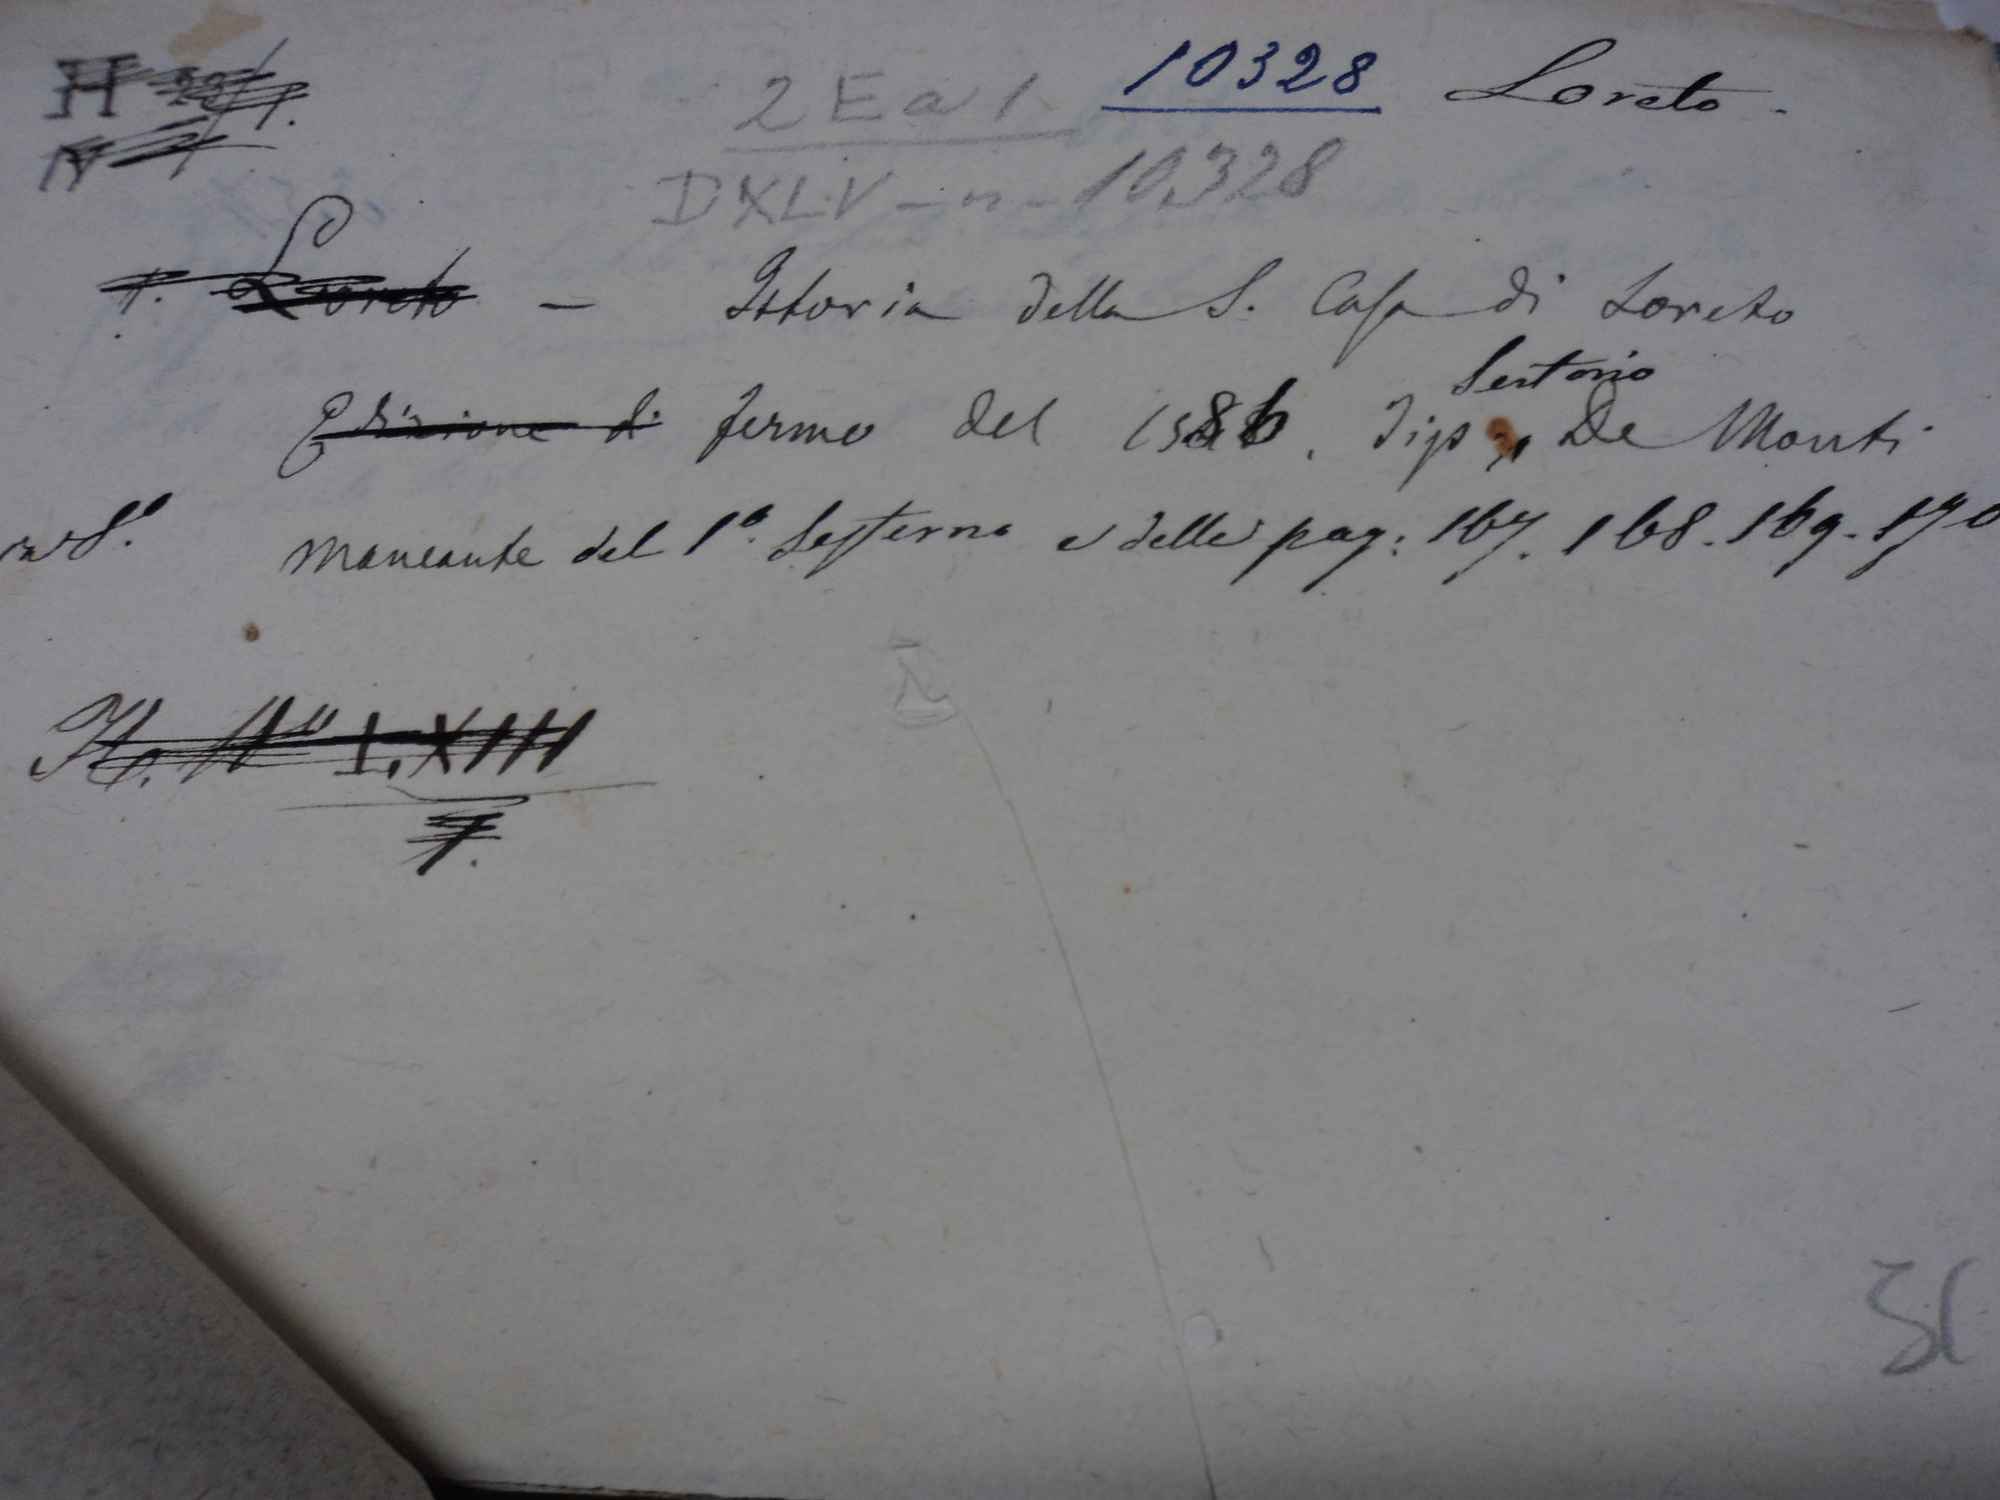 H
2 E a 1 10328 Loreto -
IV
DXLV - n - 10,328
1. Loreto - Istoria della S. Casa di Loreto
Sertorio
Edizione di fermo del 1586. Tip. De Monti
in 8.º mancante del 1º. Sesterno e delle pag: 167. 168. 169. 170
H. Nº LXIII
7.
31